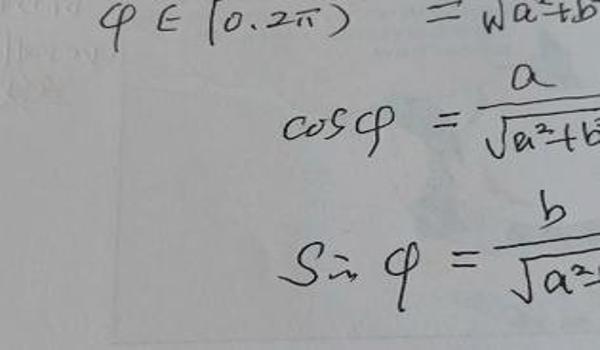 φ ∈ [0.2π) = √a²+b
cosφ = a/√a²+b²
Sin φ = b/√a²+